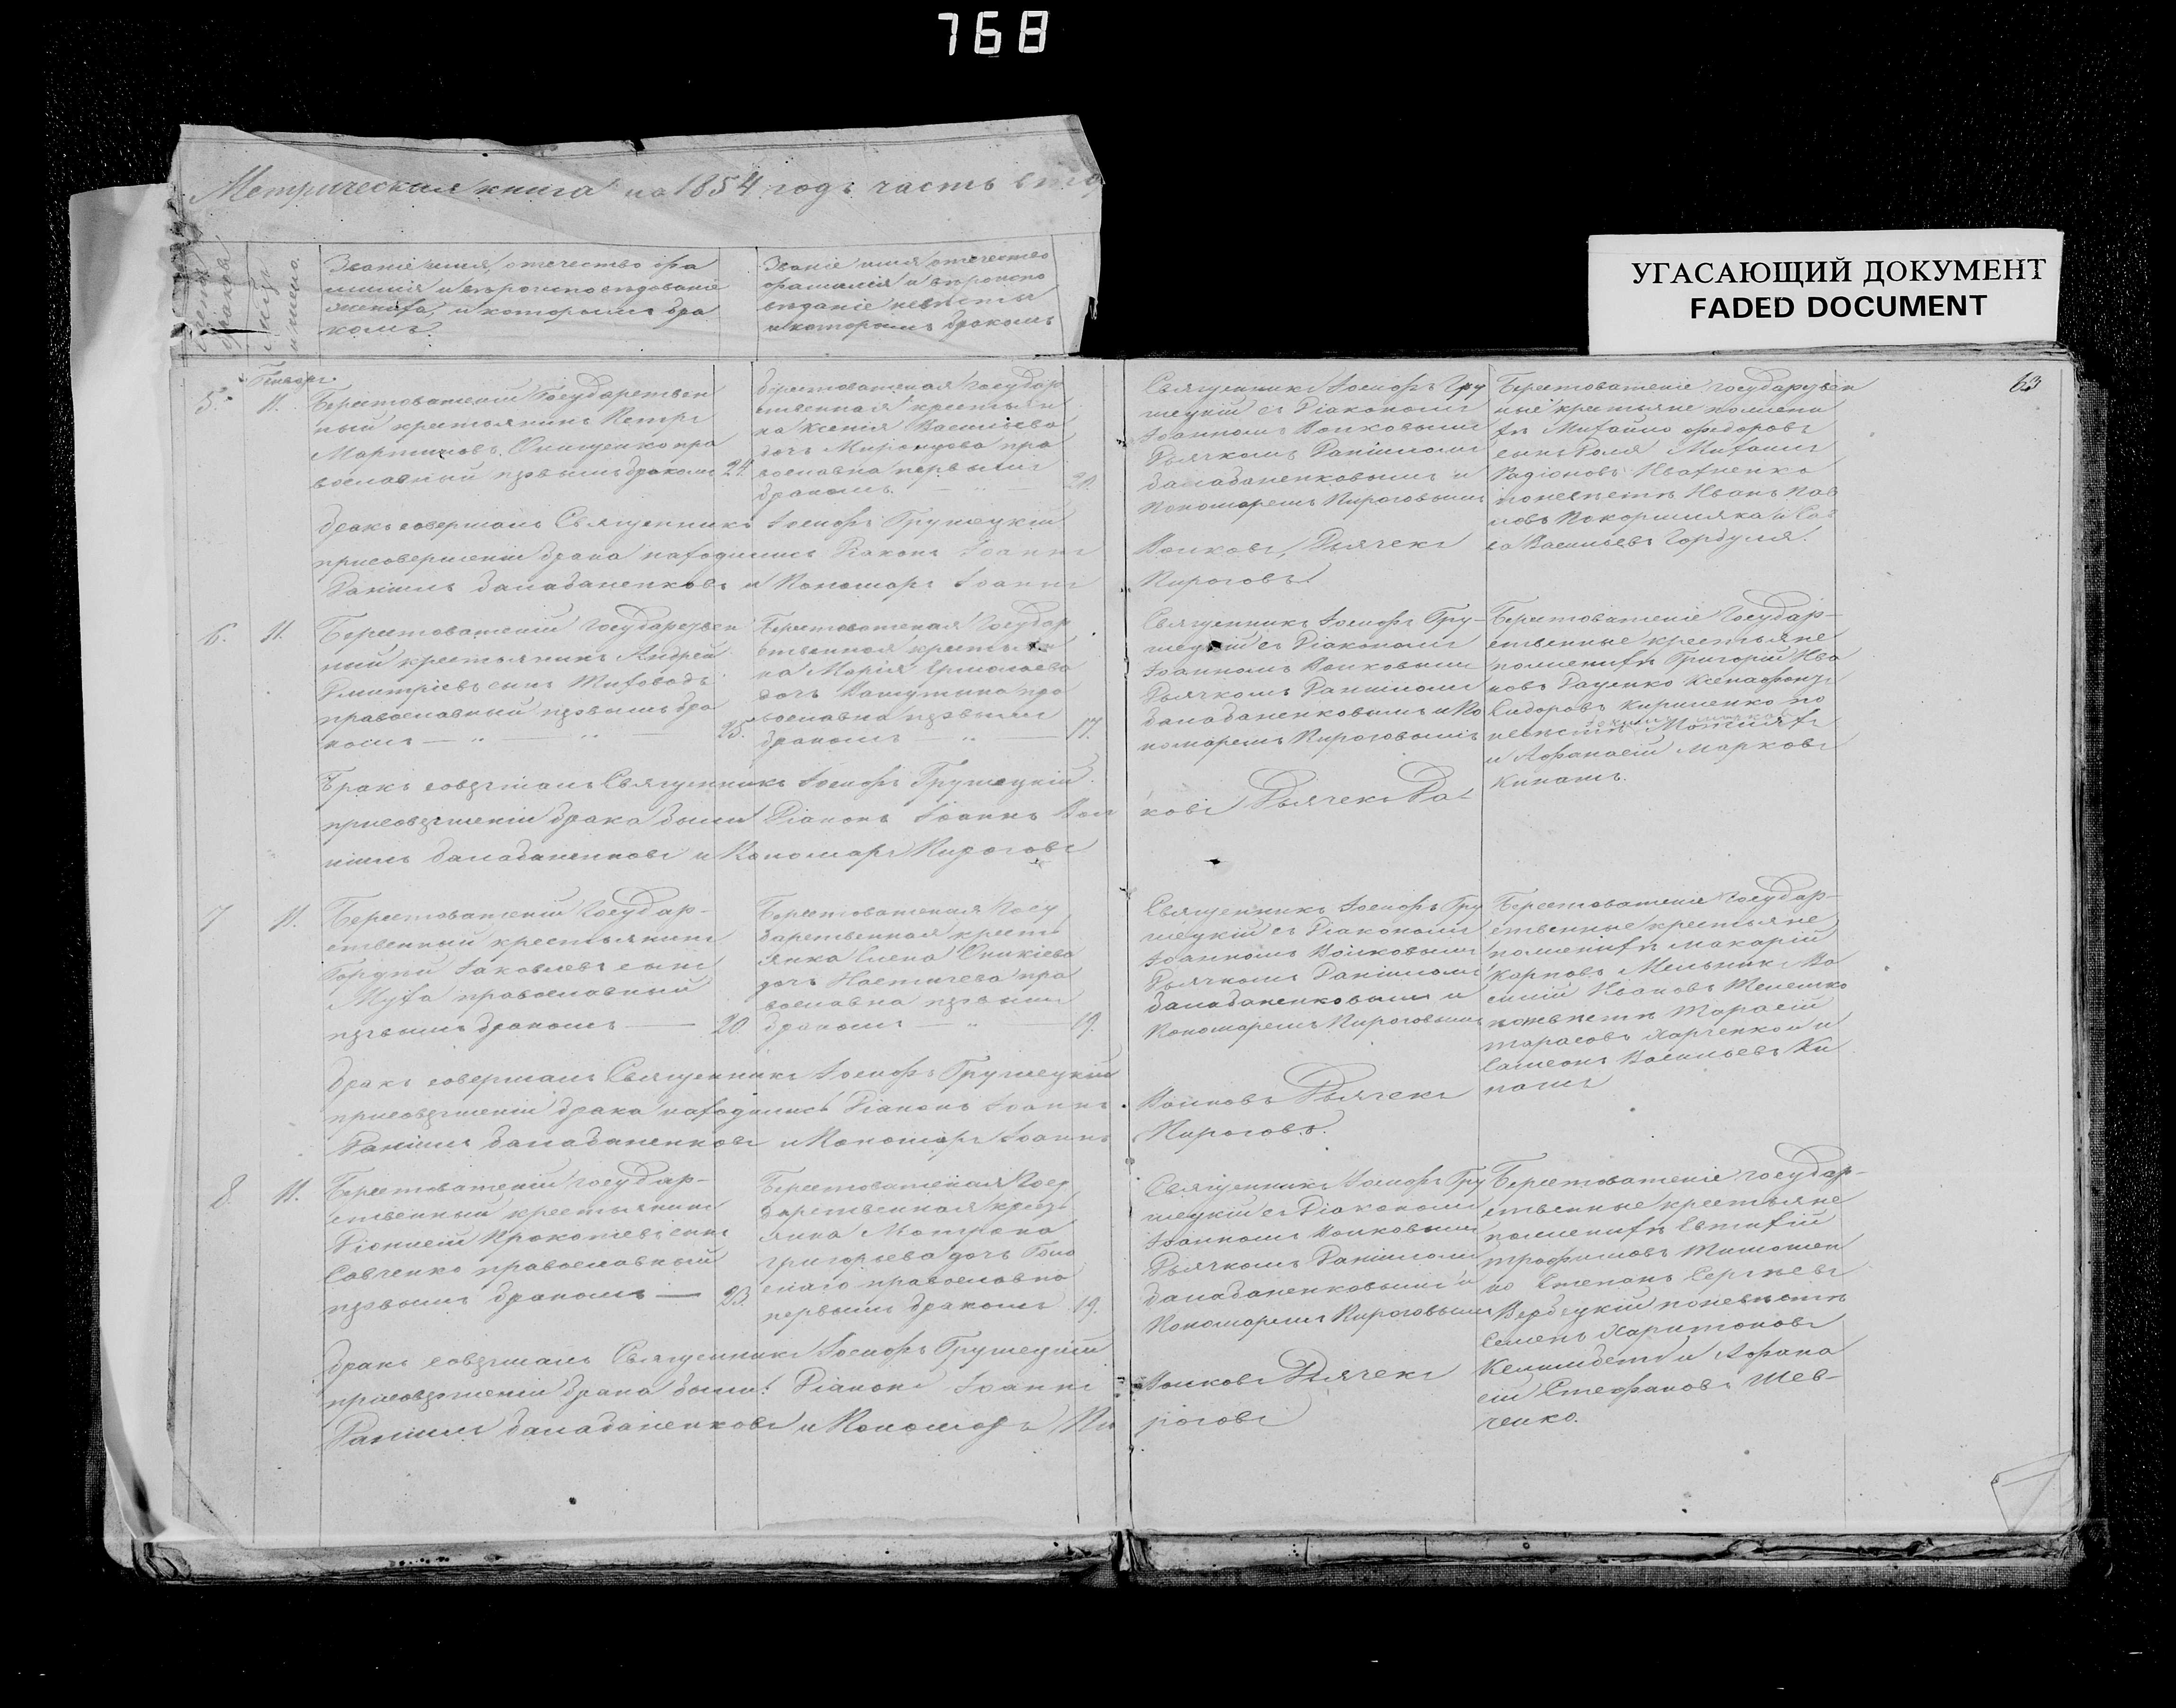 768
УГАСАЮЩИЙ ДОКУМЕНТ
FADED DOCUMENT
63
Метрическая книга на 1854 годъ часть втор
Счетъ браковъ
Месяцъ и число.
Званіе имя, отечество фа
милія и вѣроисповѣданіе
жениха, и которымъ бра
комъ.
Званіе имя отечество
фамилія и вѣроиспо
вѣданіе невѣсты
и которымъ бракомъ
Генварь.
5. 11.
Берестоватскій Государствен
ный крестьянинъ Петръ
Мартиновъ Онищенко пра
вославный первымъ бракомъ 24.
Берестоватская государ
ственная крестьян
ка Ксенія Васильева
дочь Миронцова пра
вославна первымъ
бракомъ 20.
Священникъ Іосифъ Гру
шецкій съ Діакономъ
Іоанномъ Волковымъ
Дьячкомъ Даніиломъ
Балабаненковымъ и
Пономаремъ Пироговымъ
Берестоватскіе государствен
ные крестьяне по жени
хѣ Михайло Федоровъ
сынъ Михаилъ
Радіоновъ Ивахненко
по невѣстѣ Иванъ Пав
ловъ Покоршняка и Са
ва Васильевъ Горбуля.
Бракъ совершалъ Священникъ Іосифъ Грушецкій
при совершеніи брака находились Діаконъ Іоаннъ Волковъ, Дьячекъ
Даніилъ Балабаненковъ и Пономарь Іоаннъ Пироговъ
6. 11.
Берестоватскій государствен
ный крестьянинъ Андрей
Дмитріевъ сынъ Тиховодъ
православный первымъ бра
комъ — " — " — 25.
Берестоватская Государ
ственная крестьян
ка Марія Ермолаева
дочь пра
вославна первымъ
бракомъ " — 17.
Священникъ Іосифъ Гру-
шецкій съ Діакономъ
Іоанномъ Волковымъ
Дьячкомъ Даніиломъ
Балабаненковымъ и По
номаремъ Пироговымъ
Берестоватскіе Государ-
ственные крестьяне
по женихѣ Григорій Ива
новъ Даценко Ксенофонтъ
Сидоровъ Кириленко по
невѣстѣ
и Афанасій Марковъ
Кинашъ.
Бракъ совершалъ Священникъ Іосифъ Грушецкій.
при совершеніи брака были Діаконъ Іоаннъ Вол ковъ Дьячекъ Да-
ніилъ Балабаненковъ и Пономарь Пироговъ
7 11.
Берестоватскій Государ-
ственный крестьянинъ
Гордѣй Іаковлевъ сынъ
Муха православный
первымъ бракомъ — 20.
Берестоватская Госу
дарственная кресть
янка Елена Оникіева
дочь пра
вославна первымъ
бракомъ — " 19.
Священникъ Іосифъ Гру
шецкій съ Діакономъ
Іоанномъ Волковымъ
Дьячкомъ Даніиломъ
Балабаненковымъ и
Пономаремъ Пироговымъ
Берестоватскіе государ-
ственные крестьяне
по женихѣ Макарій
Карповъ Мельникъ Ва
силій Ивановъ Телешко
по невѣстѣ Тарасій
Тарасовъ Харченко и
Самсонъ Васильевъ Ки
нашъ
Бракъ совершалъ Священникъ Іосифъ Грушецкій
при совершеніи брака находились Діаконъ Іоаннъ Волковъ Дьячекъ
Даніилъ Балабаненковъ и Пономарь Іоаннъ Пироговъ.
8. 11.
Берестоватскій государ-
ственный крестьянинъ
Діонисій Прокопіевъ сынъ
Савченко православный
первымъ бракомъ — 23.
Берестоватская Госу
дарственная крест
янка Матрона
Григорьева дочь
православна
первымъ бракомъ 19.
Священникъ Іосифъ Гру
шецкій съ Діакономъ
Іоанномъ Волковымъ
Дьячкомъ Даніиломъ
Балабаненковымъ и
Пономаремъ Пироговымъ
Берестоватскіе государ-
ственные крестьяне
по женихѣ Евтихій
Трофимовъ Тимошен
ко Степанъ Сергѣевъ
Вербецкій по невѣстѣ
Семенъ Харитоновъ
и Афана
сій Стефановъ Шев-
ченко.
Бракъ совершалъ Священникъ Іосифъ Грушецкій
при совершеніи брака были: Діаконъ Іоаннъ Волковъ Дьячекъ
Даніилъ Балабаненковъ и Пономарь Пи роговъ